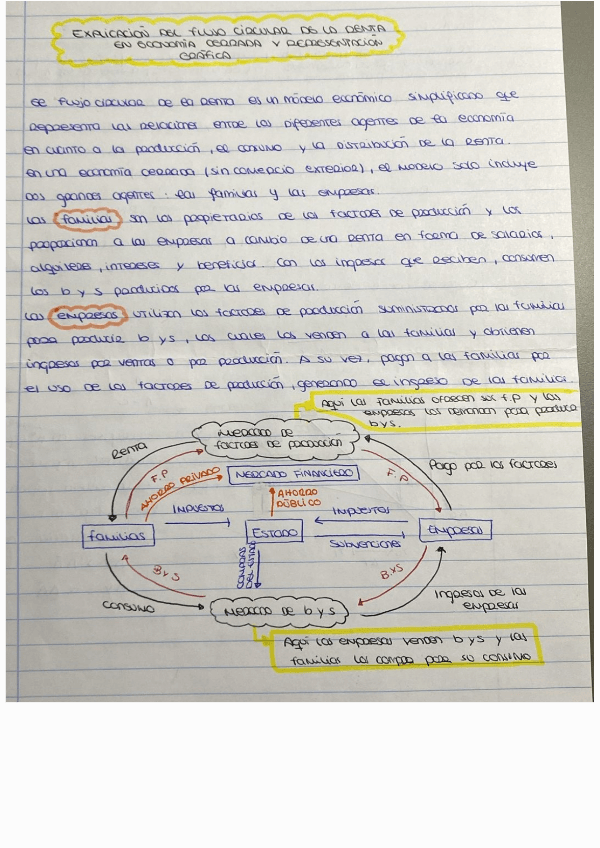 EXPLICACIÓN DEL FLUJO CIRCULAR DE LA RENTA
EN ECONOMÍA CERRADA Y REPRESENTACIÓN
GRÁFICA
El flujo circular de la renta es un modelo económico simplificado que
representa las relaciones entre los diferentes agentes de la economía
en cuanto a la producción, el consumo y la distribución de la renta.
en una economía cerrada (sin comercio exterior), el modelo solo incluye
dos grandes agentes: las familias y las empresas.
Las familias son las propietarias de los factores de producción y los
proporcionan a las empresas a cambio de una renta en forma de salarios,
alquileres, intereses y beneficios. Con los ingresos que reciben, consumen
los b y s producidos por las empresas.
Las empresas utilizan los factores de producción suministrados por las familias
para producir b y s, los cuales los venden a las familias y obtienen
ingresos por ventas o por producción. A su vez, pagan a las familias por
el uso de los factores de producción, generando el ingreso de las familias
Aquí las familias ofrecen sus f.p y las
empresas los demandan para producir
b y s.
MERCADO DE
factores de producción
RENTA
F.P
AHORRO PRIVADO
MERCADO FINANCIERO
F.P
Pago por los factores
AHORRO
PÚBLICO
IMPUESTOS
IMPUESTOS
familias
ESTADO
Empresas
Subvenciones
COMPRAS
DEL ESTADO
B y S
B y S
CONSUMO
MERCADO DE b y s
Ingresos de las
empresas
Aquí las empresas venden b y s y las
familias los compra para su consumo